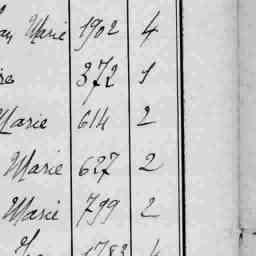 Marie 1902 4
372 1
Marie 614 2
Marie 627 2
Marie 799 2
1783 4